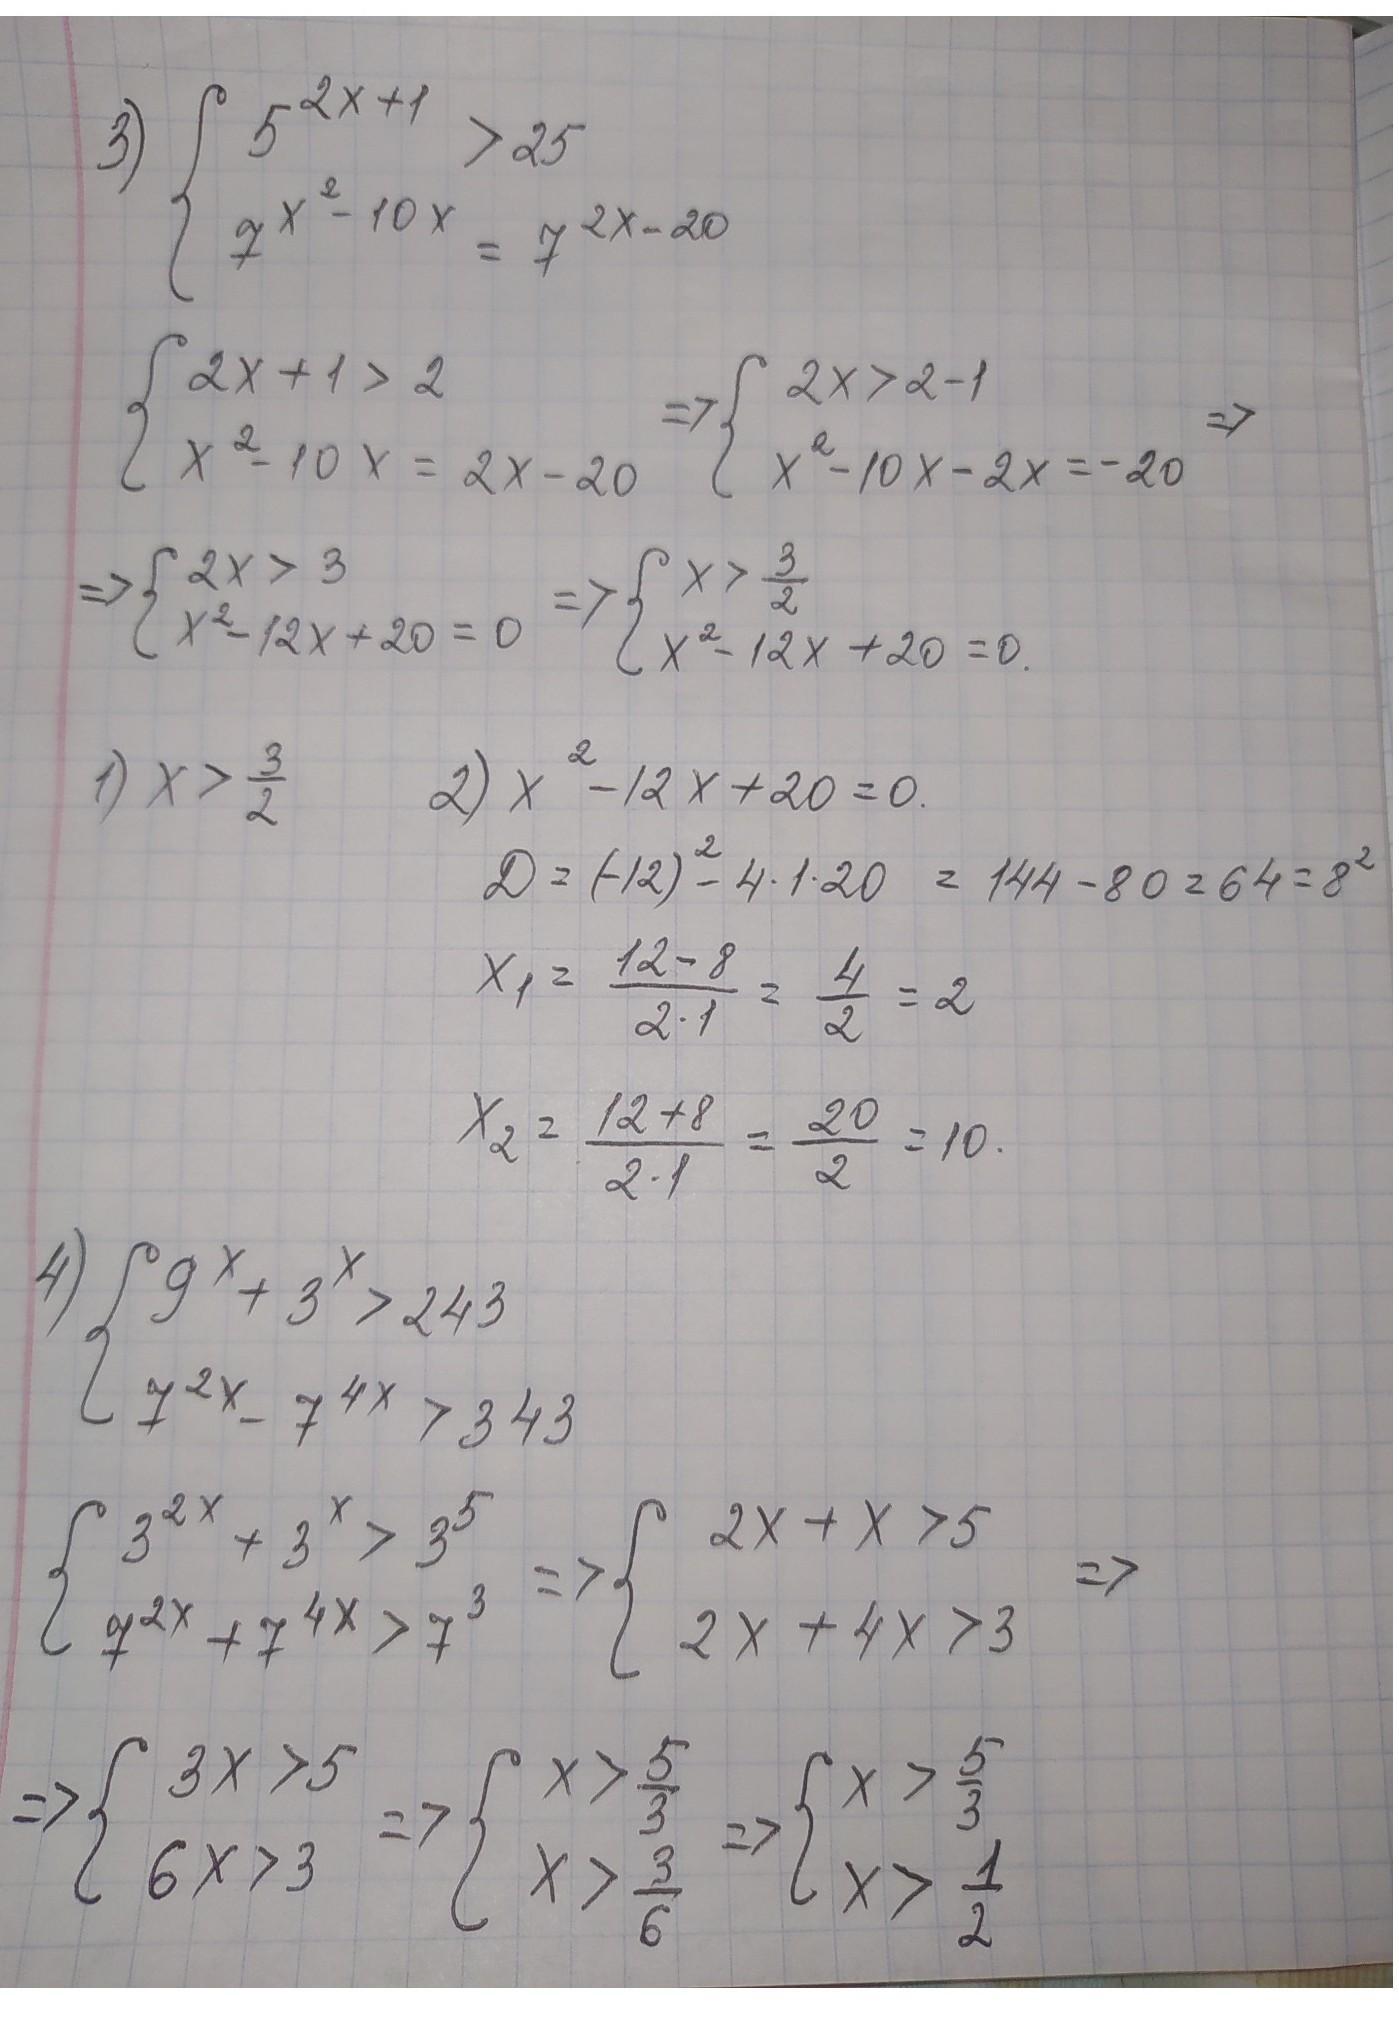 3) { 5^{2x+1} > 25
7^{x^2-10x} = 7^{2x-20}
{ 2x+1 > 2 => { 2x > 2-1 =>
x^2-10x = 2x-20 x^2-10x-2x = -20
=> { 2x > 3 => { x > 3/2
x^2-12x+20=0 x^2-12x+20=0.
1) x > 3/2 2) x^2-12x+20=0.
D = (-12)^2-4·1·20 = 144-80=64=8^2
x_1 = (12-8)/(2·1) = 4/2 = 2
x_2 = (12+8)/(2·1) = 20/2 = 10.
4) { 9^x + 3^x > 243
7^{2x} - 7^{4x} > 343
{ 3^{2x} + 3^x > 3^5 => { 2x+x > 5 =>
7^{2x} + 7^{4x} > 7^3 2x+4x > 3
=> { 3x > 5 => { x > 5/3 => { x > 5/3
6x > 3 x > 3/6 x > 1/2